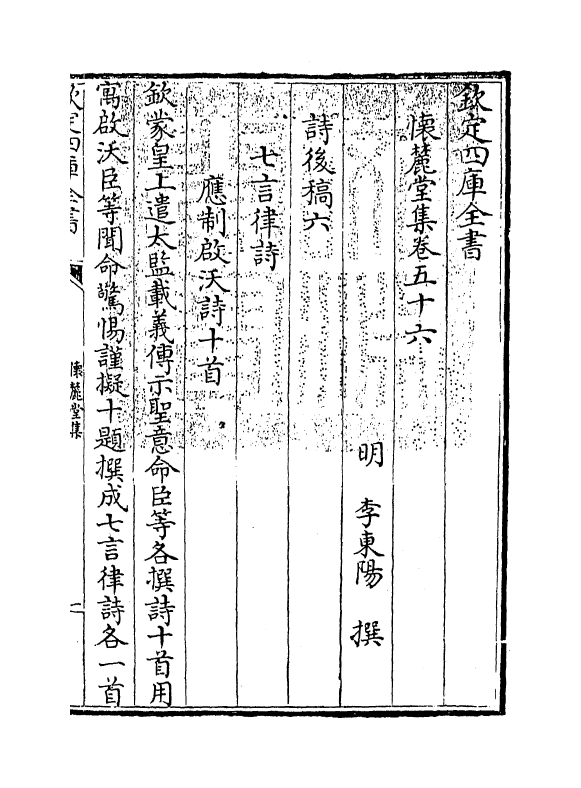 欽定四庫全書
懷麓堂集卷五十六
明 李東陽 撰
詩後稿六
七言律詩
應制啟沃詩十首
欽蒙皇上遣太監載義傳示聖意命臣等各撰詩十首用
寓啟沃臣等聞命驚惕謹擬十題撰成七言律詩各一首
欽定四庫全書
懷麓堂集